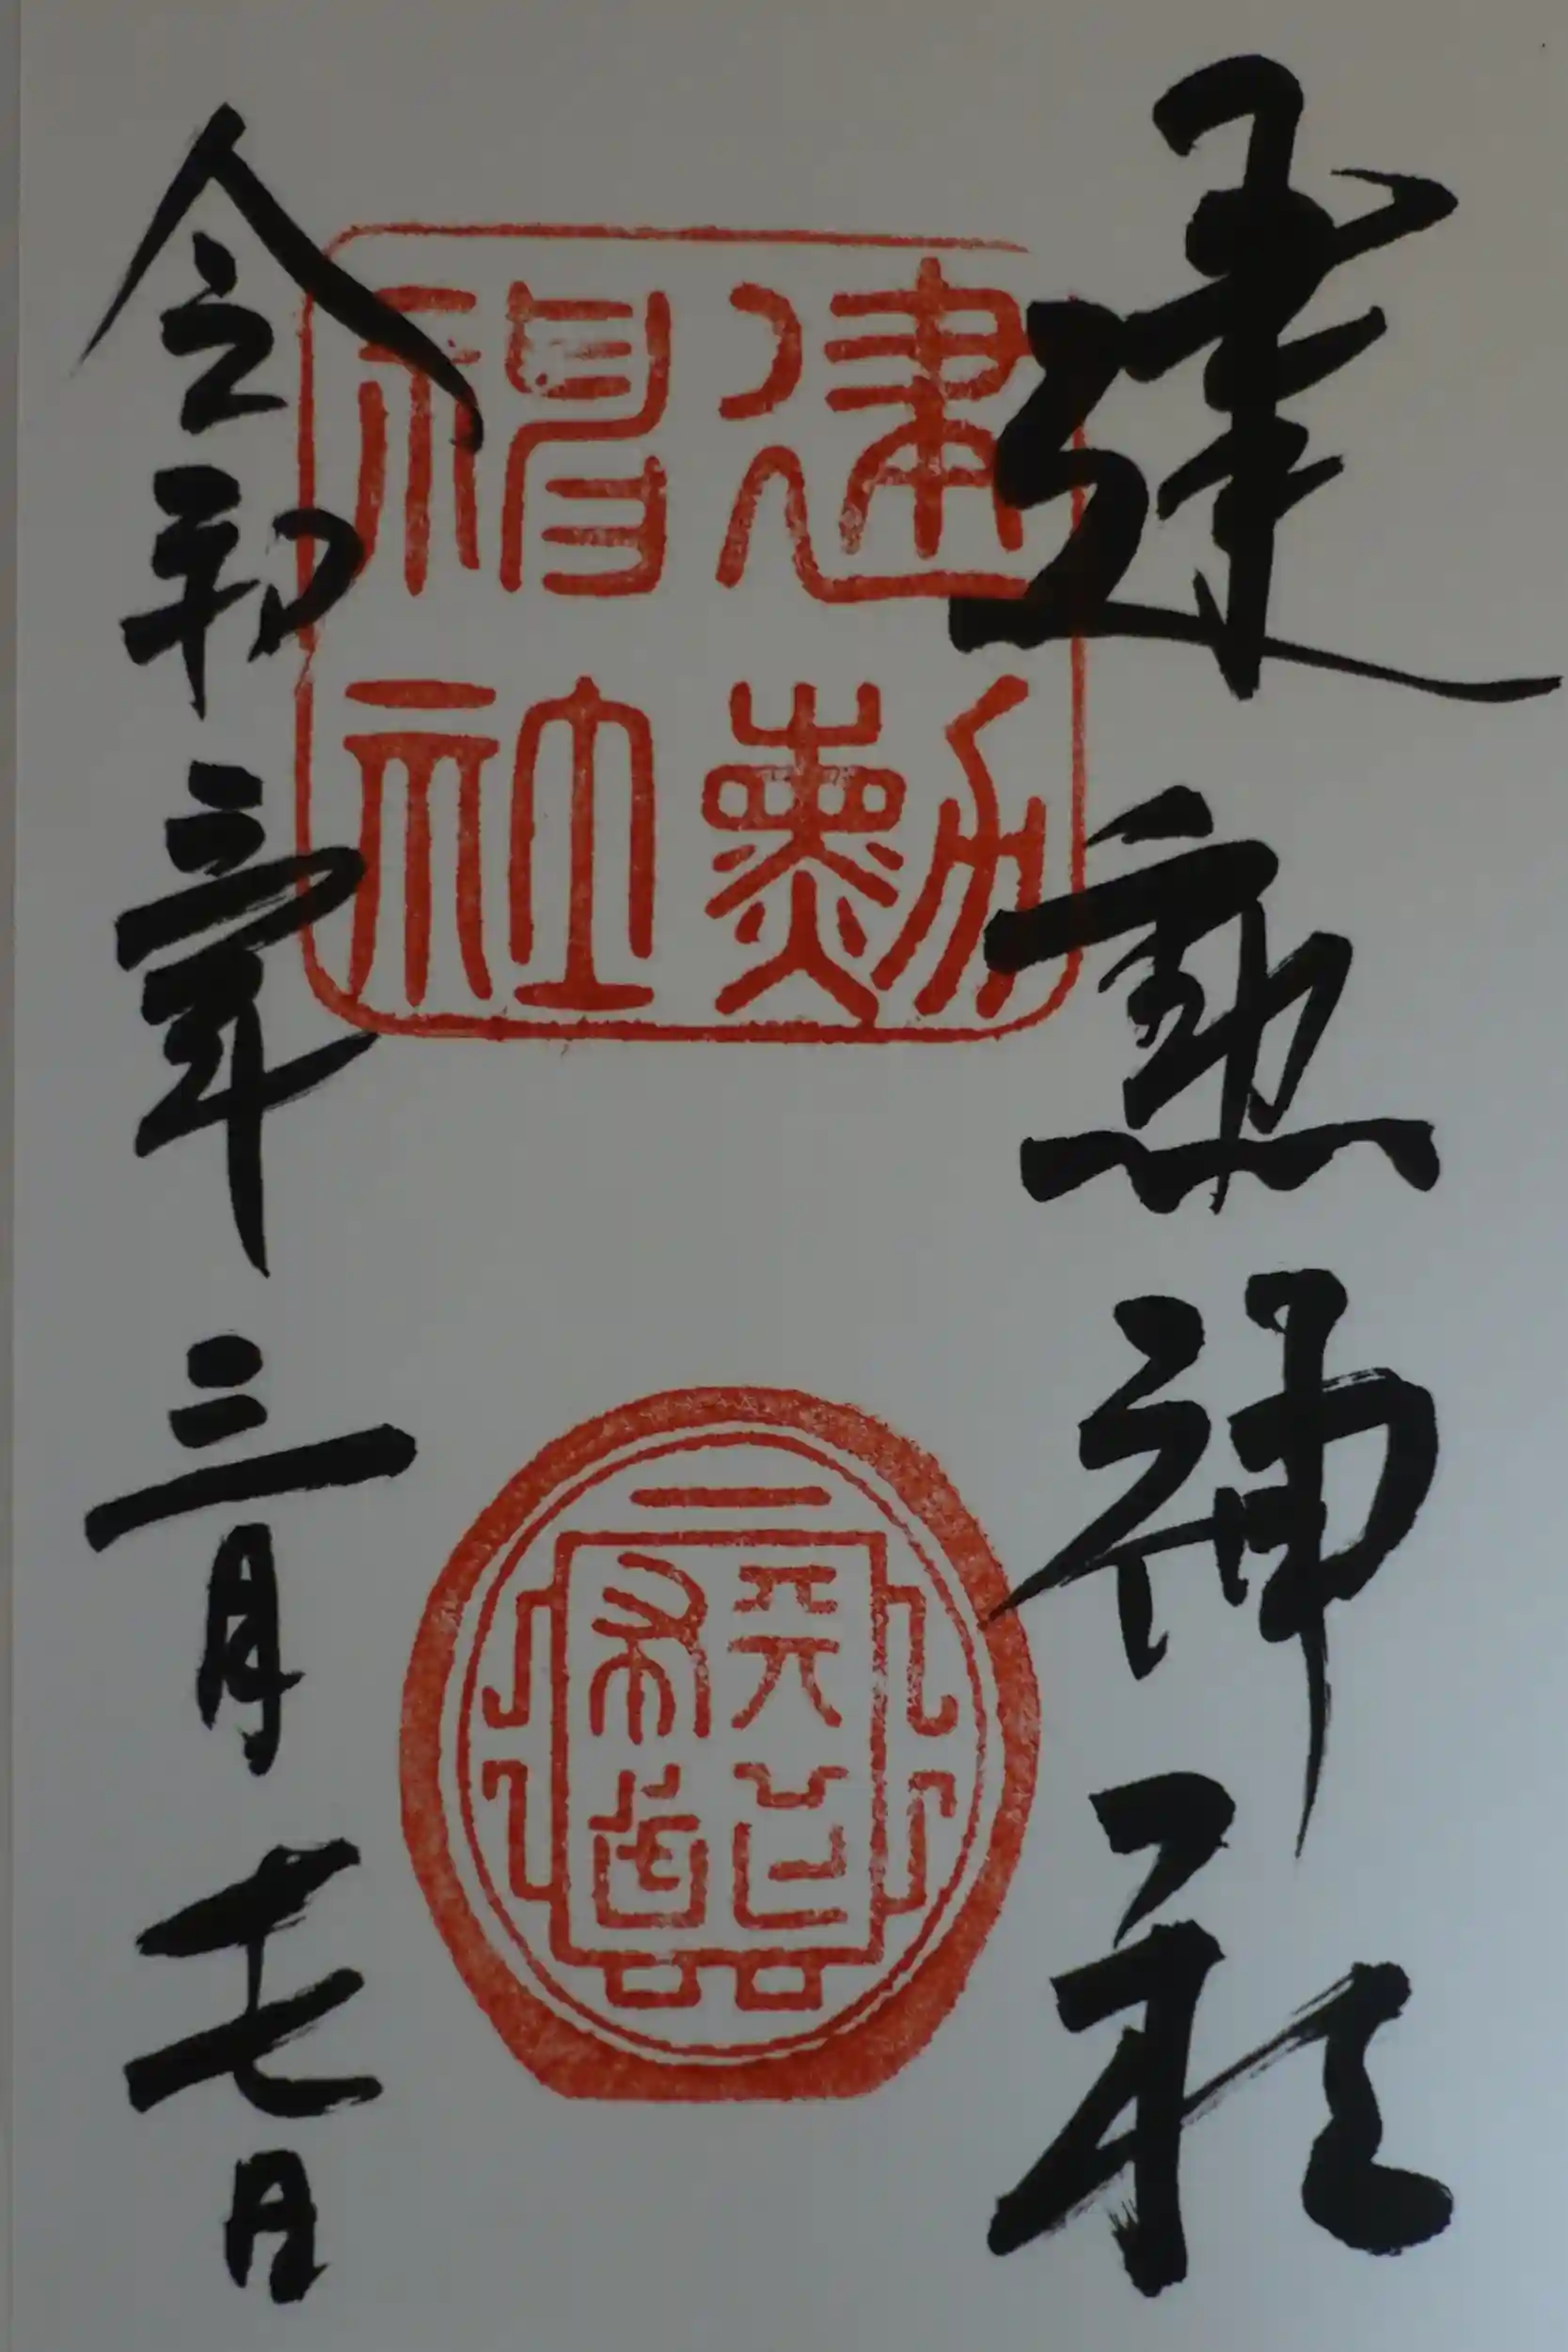 建勲神社
建勳
神社
令和三年三月十七日